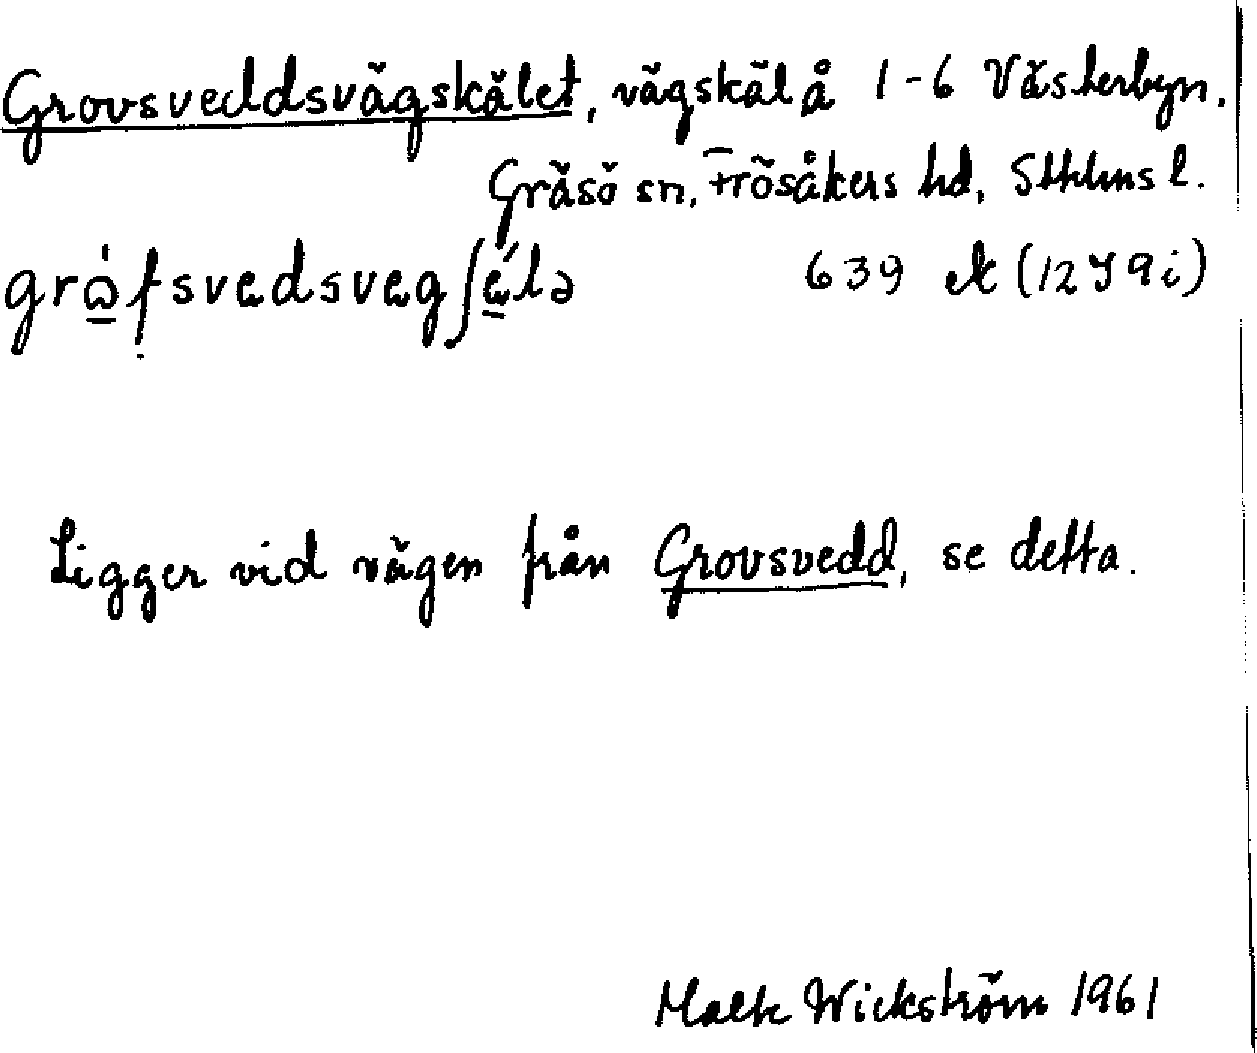 Grovsveddsvägskälet, vägskäl å 1-6 Västerbyn.
Gräsö sn, Frösåkers hd, Sthlms l.
639 ek (12I9i)
Ligger vid vägen från Grovsvedd, se detta.
Wickström 1961